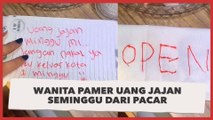 uang jajan
minggu ini..
jangan pakai ya
keluar kota
1 minggu !!
OPEN
WANITA PAMER UANG JAJAN
SEMINGGU DARI PACAR